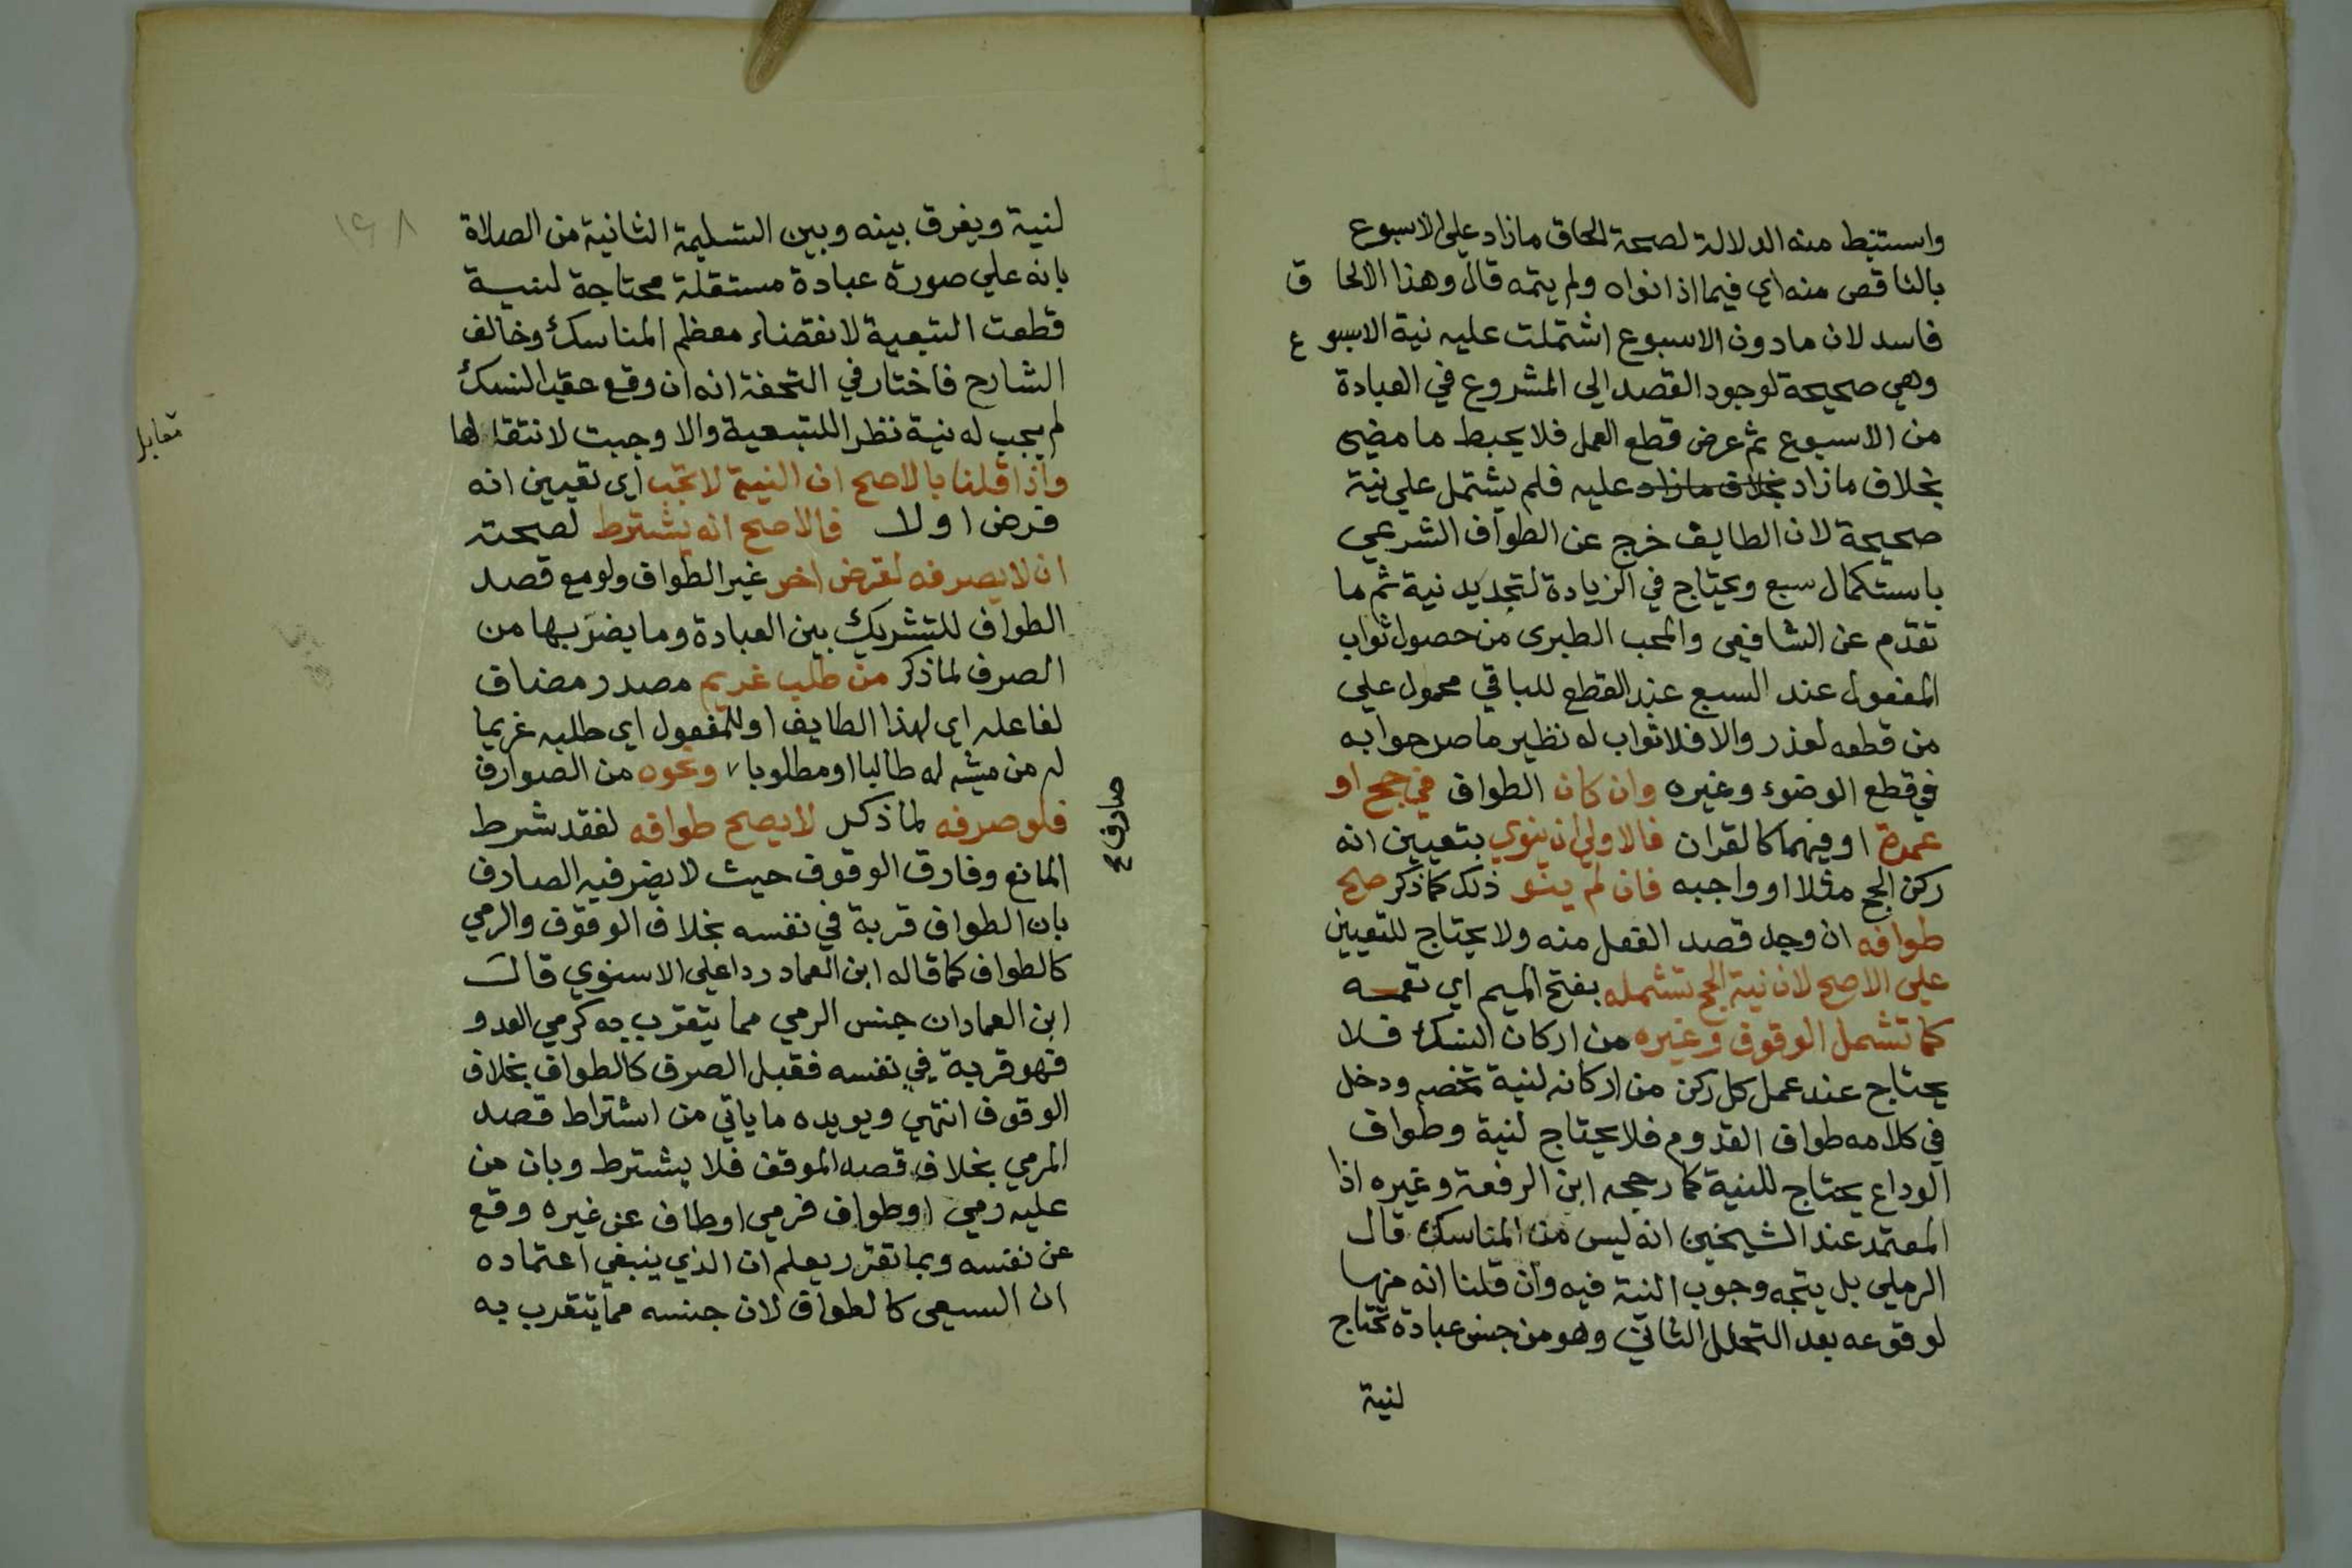 واستنبط منه الدلالة لصحة الحاق ما زاد علي الاسبوع
بالناقص منه اي فيما اذا نواه ولم يتمه قال وهذا الالحا ق
فاسد لان ما دون الاسبوع اشتملت عليه نية الاسبو ع
وهي صحيحة لوجود القصد الي المشروع في العبادة
من الاسبوع ثم عرض قطع العمل فلا يحبط ما مضي
بخلاف ما زاد بخلاف ما زاد عليه فلم يشتمل علي نية
صحيحة لان الطايف خرج عن الطواف الشرعي
باستكمال سبع ويحتاج في الزيادة لتجديد نية ثم ما
تقدم عن الشافعي والمحب الطبري من حصول ثواب
المفعول عند السبع عند القطع للباقي محمول علي
من قطعه لعذر والا فلا ثواب له نظير ما صرحوا به
في قطع الوضوء وغيره وان كان الطواف في حج او
عمرة او فيهما كالقران فالاولي ان ينوي بتعيين انه
ركن الحج مثلا او واجبه فان لم ينو ذلك كما ذكر صح
طوافه ان وجد قصد الفعل منه ولا يحتاج للتعيين
علي الاصح لان نية الحج تشمله بفتح الميم اي تعمه
كما تشمل الوقوف وغيره من اركان النسك فلا
يحتاج عند عمل كل ركن من اركانه لنية تخصه ودخل
في كلامه طواف القدوم فلا يحتاج لنية وطواف
الوداع يحتاج للنية كما رجحه ابن الرفعة وغيره اذا
المعتمد عند الشيخين انه ليس من المناسك قال
الرملي بل يتجه وجوب النية فيه وان قلنا انه منها
لوقوعه بعد التحلل الثاني وهو من جنس عبادة تحتاج
لنية
١٦٨
لنية ويفرق بينه وبين التسليمة الثانية من الصلاة
بانه علي صورة عبادة مستقلة محتاجة لنية
قطعت التبعية لانقضاء معظم المناسك وخالف
الشارح فاختار في التحفة انه ان وقع عقب النسك
لم يجب له نية نظرا للتبعية والا وجبت لانتقالها
مقابل
واذا قلنا بالاصح ان النية لا تجب اي تعيين انه
فرض اولا فالاصح انه يشترط لصحته
ان لا يصرفه لغرض اخر غير الطواف ولو مع قصد
الطواف للتشريك بين العبادة وما يضر بها من
الصرف لما ذكر من طلب غريم مصدر مضاف
لفاعله اي لهذا الطايف او للمفعول اي طلبه غريما
له من مشيه له طالبا او مطلوبا ونحوه من الصوارف
صارف ع
فلو صرفه لما ذكر لا يصح طوافه لفقد شرط
المانع وفارق الوقوف حيث لا يضر فيه الصارف
بان الطواف قربة في نفسه بخلاف الوقوف والرمي
كالطواف كما قاله ابن العماد ردا علي الاسنوي قال
ابن العماد ان جنس الرمي مما يتقرب به كرمي العدو
فهو قربة في نفسه فقبل الصرف كالطواف بخلاف
الوقوف انتهي ويويده ما ياتي من اشتراط قصد
المرمي بخلاف قصد الموقف فلا يشترط وبان من
عليه رمي او طواف فرمي او طاف عن غيره وقع
عن نفسه وبما تقرر يعلم ان الذي ينبغي اعتماده
ان السعي كالطواف لان جنسه مما يتقرب به